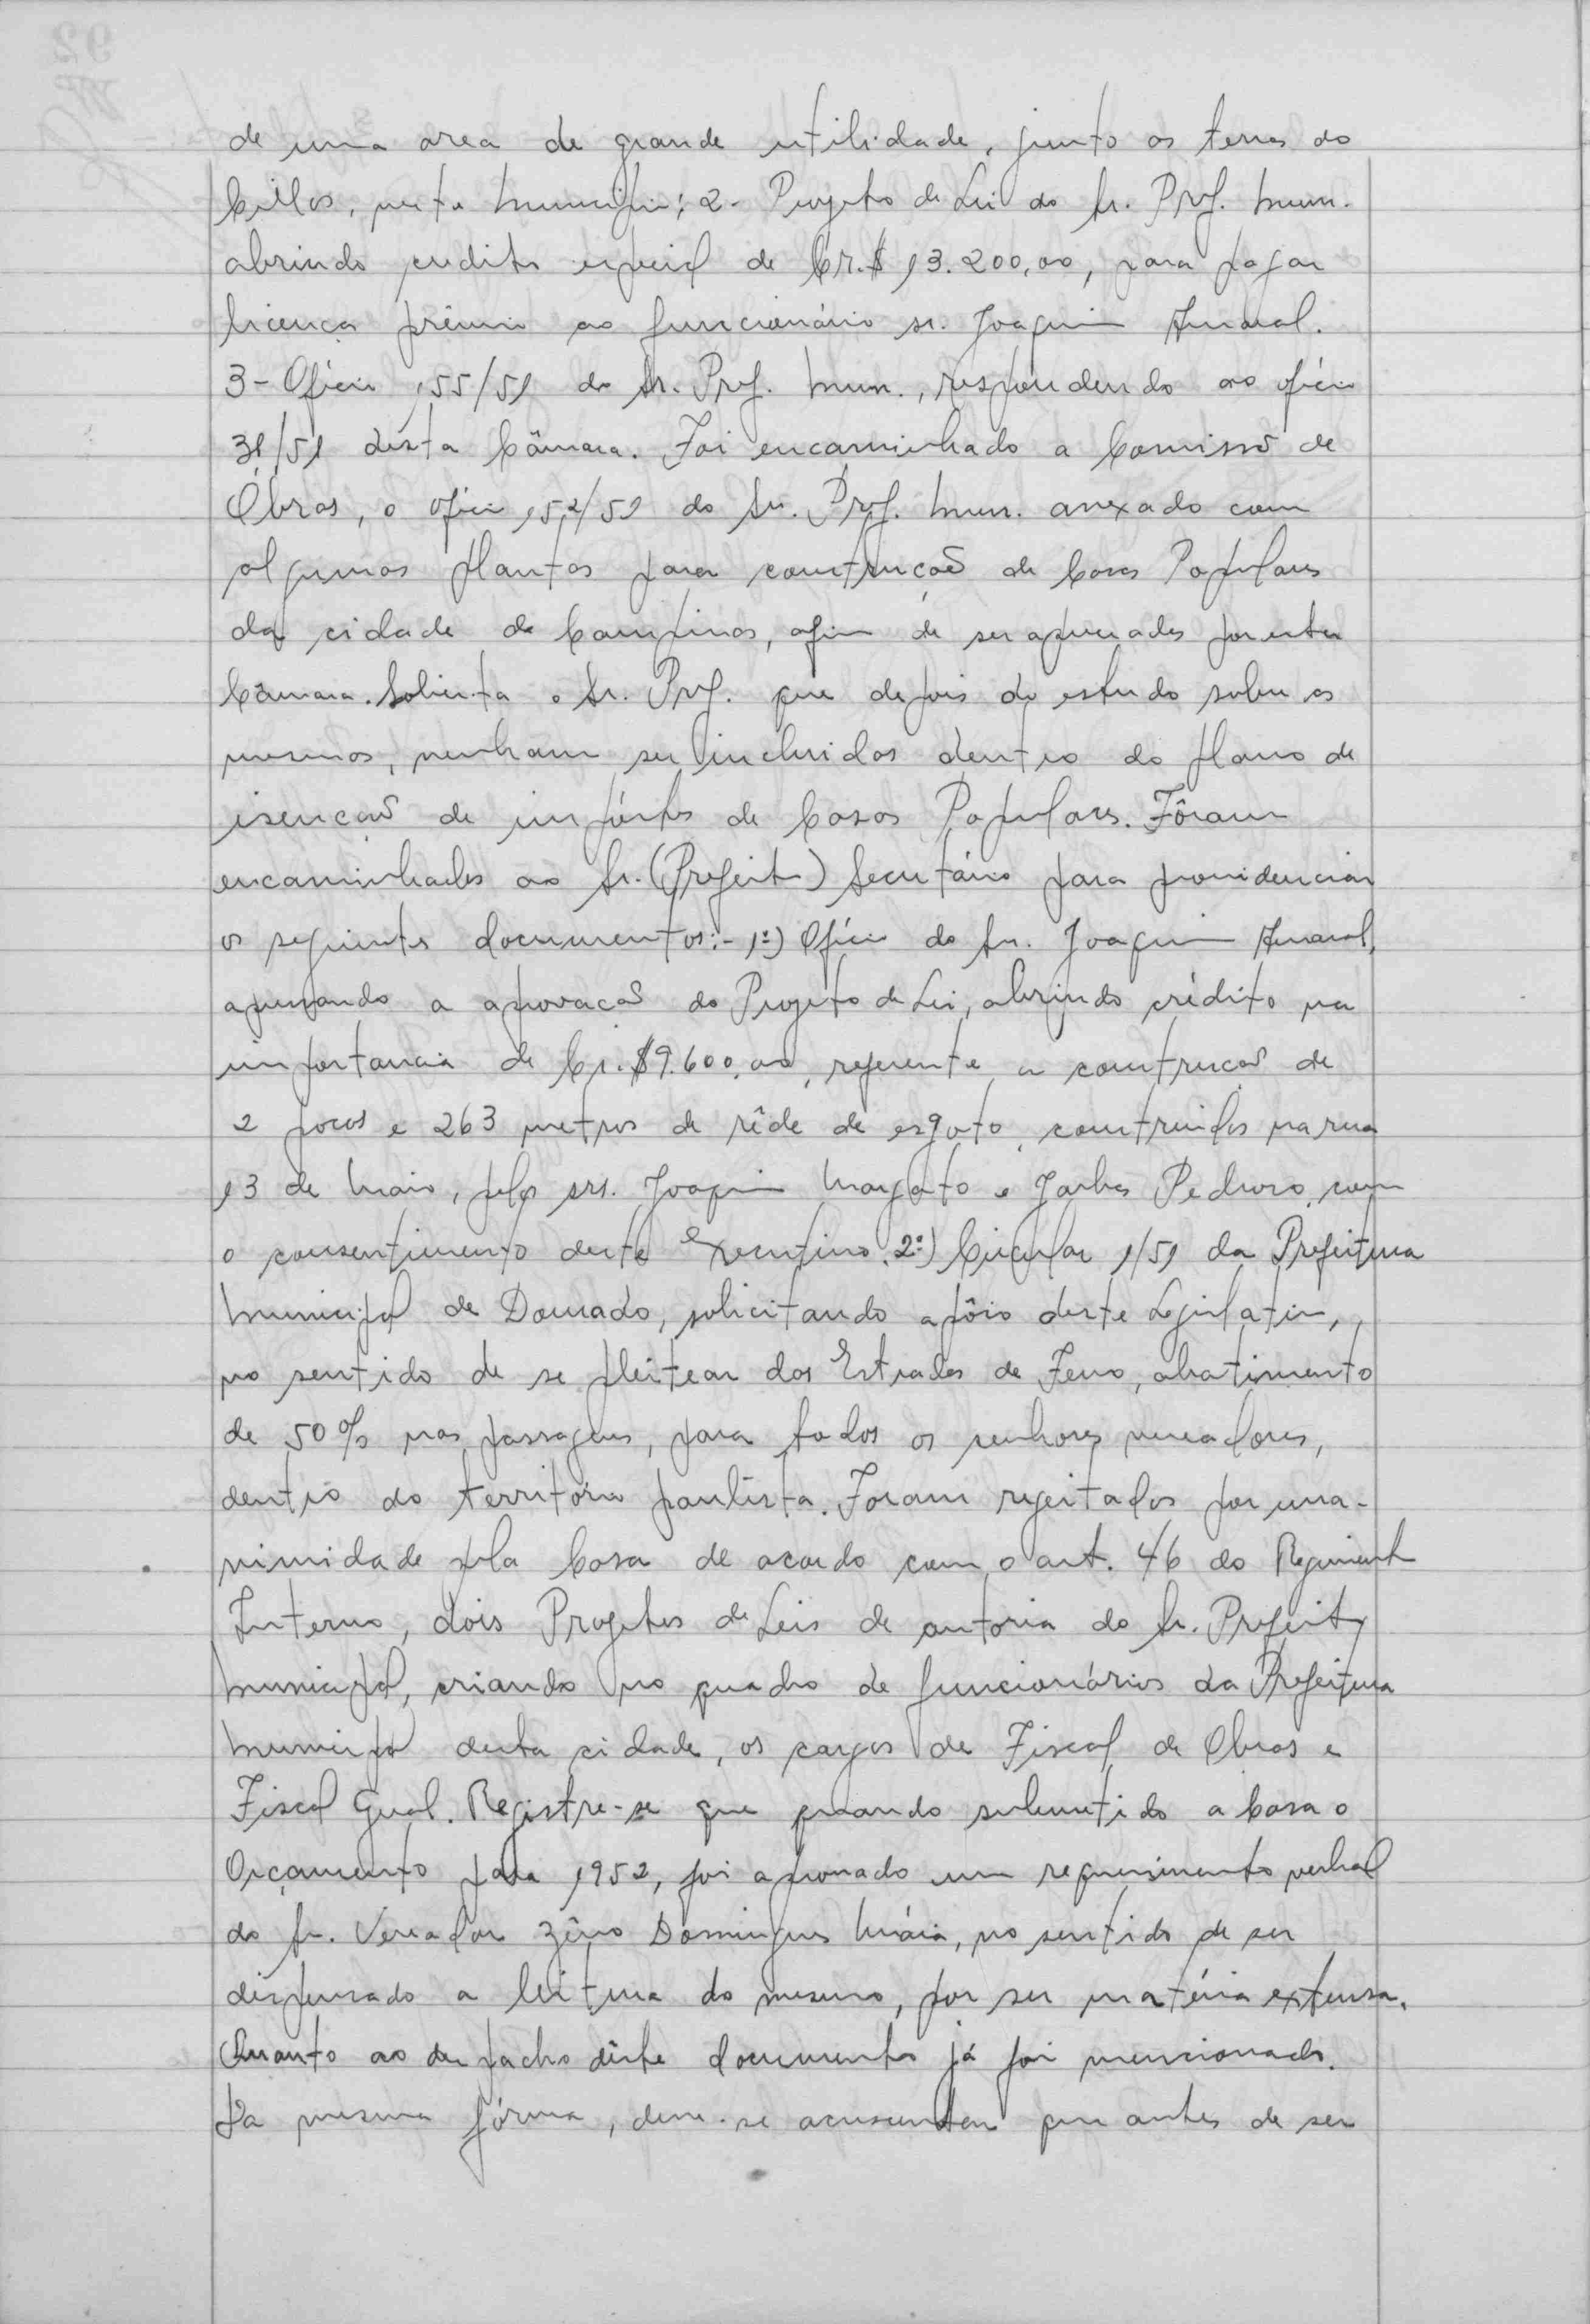 de uma area de grande utilidade, junto as terras do
Cillos, nesta Municipio; 2- Projeto de Lei do Sr. Pref. Mun.
abrindo credito especial de Cr.$ 13.200,00, para pagar
licença prêmio ao funcionário sr. Joaquim Amaral.
3- Oficio 155/51 do Sr. Pref. Mun., respondendo ao oficio
31/51 desta Câmara. Foi encaminhado a Comissão de
Obras, o oficio 152/51 do Sr. Pref. Mun. anexado com
algumas plantas para construcão de Casas Populares
da cidade de Campinas, afim de ser aprovadas por esta
Câmara. Solicita o Sr. Pref. que depois do estudo sobre as
mesmas, venham ser incluidas dentro do plano de
isencão de impôstos de Casas Populares. Fôram
encaminhados ao Sr. (Prefeito) Secretário para providenciar
os seguintes documentos:- 1º) Oficio do Sr. Joaquim Amaral,
a aprovacão do Projeto de Lei, abrindo crédito na
importancia de Cr.$9.600,00, referente a construcão de
2 pocos e 263 metros de rêde de esgoto, construidos na rua
13 de Maio, pelos srs. Joaquim Margato e Jarbas Pedroso, com
o consentimento deste Executivo. 2º) Circular 1/51 da Prefeitura
Municipal de Dourado, solicitando apôio deste Legislativo,
no sentido de se pleitear das Estradas de Ferro, abatimento
de 50% nas passagens, para todos os senhores vereadores,
dentro do território paulista. Foram rejeitados por una-
nimidade pela Casa de acordo com o art. 46 do Regimento
Interno, dois Projetos de Leis de autoria do Sr. Prefeito
Municipal, criando no quadro de funcionários da Prefeitura
Municipal desta cidade, os cargos de Fiscal de Obras e
Fiscal Geral. Registre-se que quando submetido a Casa o
Orçamento para 1952, foi aprovado um requerimento verbal
do Sr. Vereador Zêno Domingues Máia, no sentido de ser
dispensado a leitura do mesmo, por ser matéria extensa.
Quanto ao despacho dêste documento já foi mencionado.
Da mesma fórma, deve-se acrescentar que antes de ser